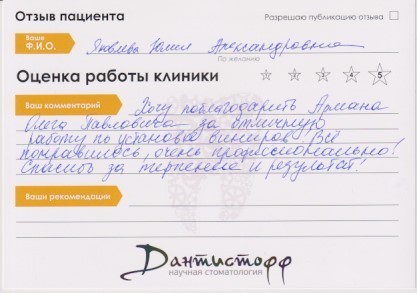 Отзыв пациента
Разрешаю публикацию отзыва
Ваше Ф.И.О.
Яковлева Юлия Александровна
По желанию
Оценка работы клиники
1 2 3 4 5
Ваш комментарий
Хочу поблагодарить Армана
Олега Павловича за отличную
работу по установке виниров! Всё
понравилось, очень профессионально!
Спасибо за терпение и результат!
Ваши рекомендации
Дантистофф
научная стоматология